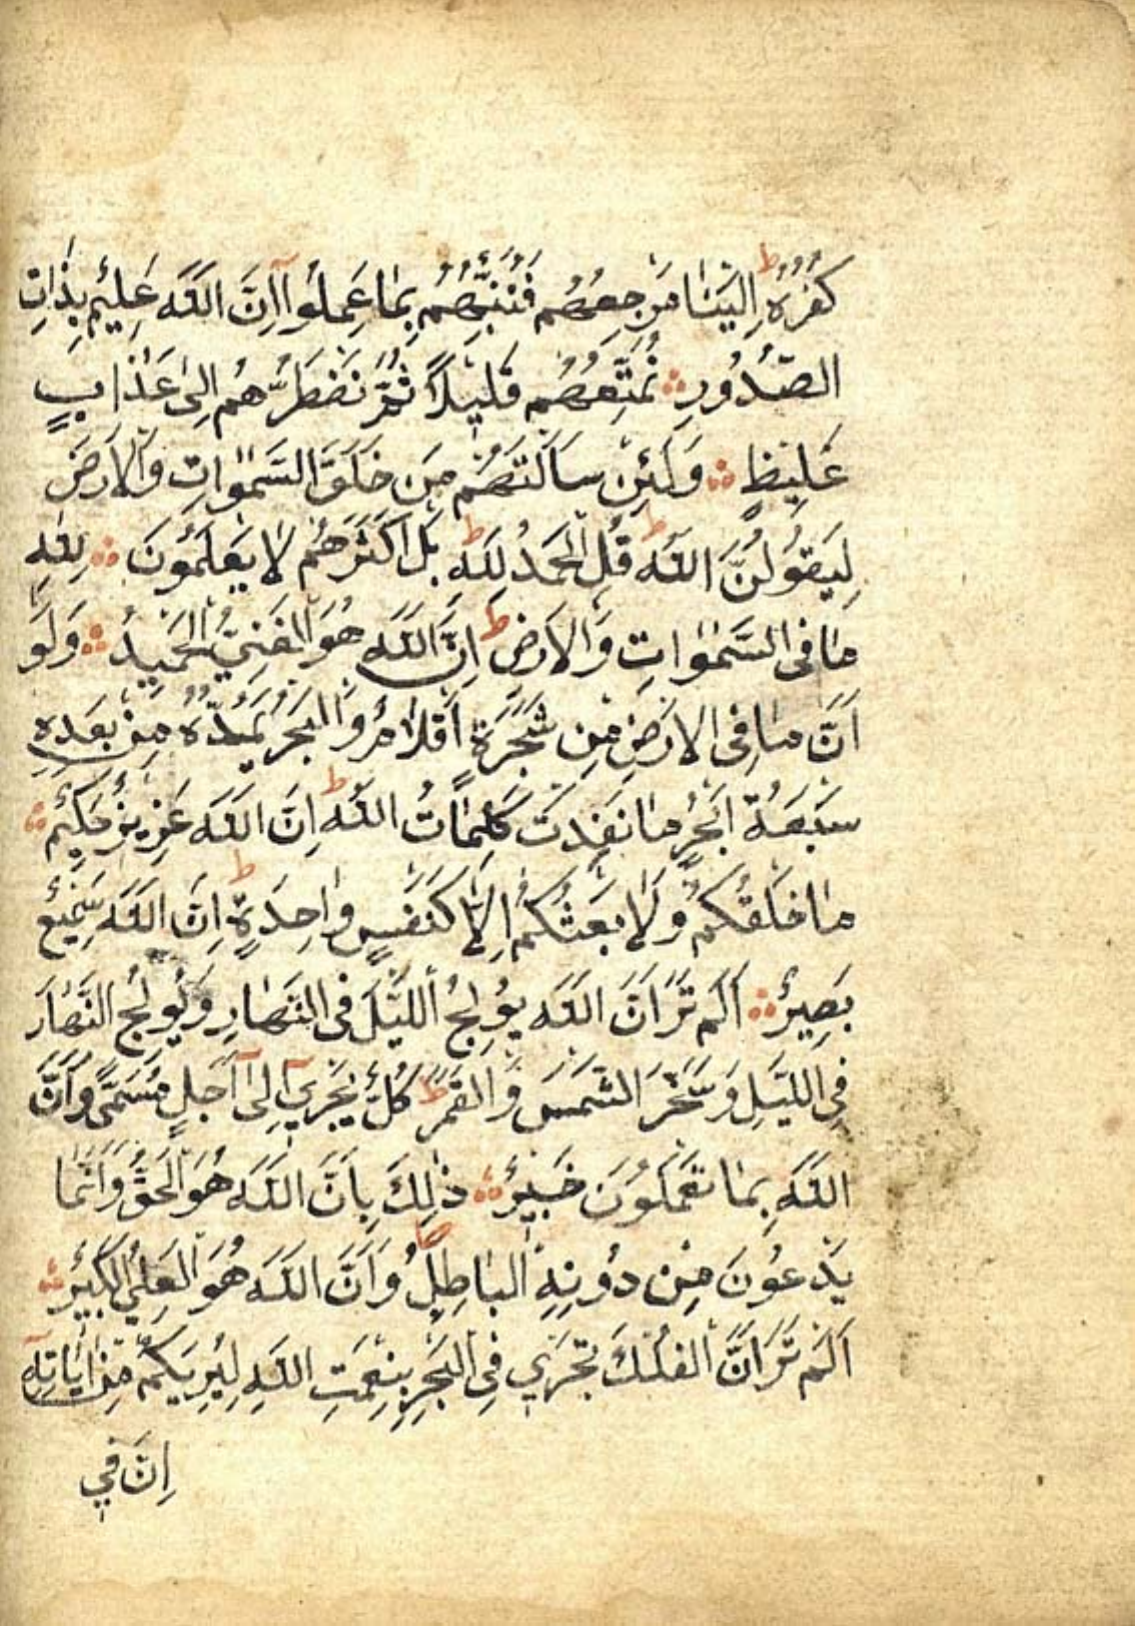 كُفْرُهُ ط اِلَيْنَا مَرْجِعُهُمْ فَنُنَبِّئُهُمْ بِمَا عَمِلُوا اِنَّ اللّٰهَ عَلِيمٌ بِذَاتِ
الصُّدُورِ ۞ نُمَتِّعُهُمْ قَلِيلًا ثُمَّ نَضْطَرُّهُمْ اِلٰى عَذَابٍ
غَلِيظٍ ۞ وَلَئِنْ سَاَلْتَهُمْ مَنْ خَلَقَ السَّمٰوَاتِ وَالْاَرْضَ
لَيَقُولُنَّ اللّٰهُ ط قُلِ الْحَمْدُ لِلّٰهِ ط بَلْ اَكْثَرُهُمْ لَا يَعْلَمُونَ ۞ لِلّٰهِ
مَا فِى السَّمٰوَاتِ وَالْاَرْضِ ط اِنَّ اللّٰهَ هُوَ الْغَنِيُّ الْحَمِيدُ ۞ وَلَوْ
اَنَّ مَا فِى الْاَرْضِ مِنْ شَجَرَةٍ اَقْلَامٌ وَالْبَحْرُ يَمُدُّهُ مِنْ بَعْدِهِ
سَبْعَةُ اَبْحُرٍ مَا نَفِدَتْ كَلِمَاتُ اللّٰهِ ط اِنَّ اللّٰهَ عَزِيزٌ حَكِيمٌ ۞
مَا خَلْقُكُمْ وَلَا بَعْثُكُمْ اِلَّا كَنَفْسٍ وَاحِدَةٍ ط اِنَّ اللّٰهَ سَمِيعٌ
بَصِيرٌ ۞ اَلَمْ تَرَ اَنَّ اللّٰهَ يُولِجُ اللَّيْلَ فِى النَّهَارِ وَيُولِجُ النَّهَارَ
فِى اللَّيْلِ وَسَخَّرَ الشَّمْسَ وَالْقَمَرَ ط كُلٌّ يَجْرِي اِلٰى اَجَلٍ مُسَمًّى وَاَنَّ
اللّٰهَ بِمَا تَعْمَلُونَ خَبِيرٌ ۞ ذٰلِكَ بِاَنَّ اللّٰهَ هُوَ الْحَقُّ وَاَنَّمَا
يَدْعُونَ مِنْ دُونِهِ الْبَاطِلُ وَاَنَّ اللّٰهَ هُوَ الْعَلِيُّ الْكَبِيرُ ۞
اَلَمْ تَرَ اَنَّ الْفُلْكَ تَجْرِي فِى الْبَحْرِ بِنِعْمَتِ اللّٰهِ لِيُرِيَكُمْ مِنْ اٰيَاتِهِ
اِنَّ فِي